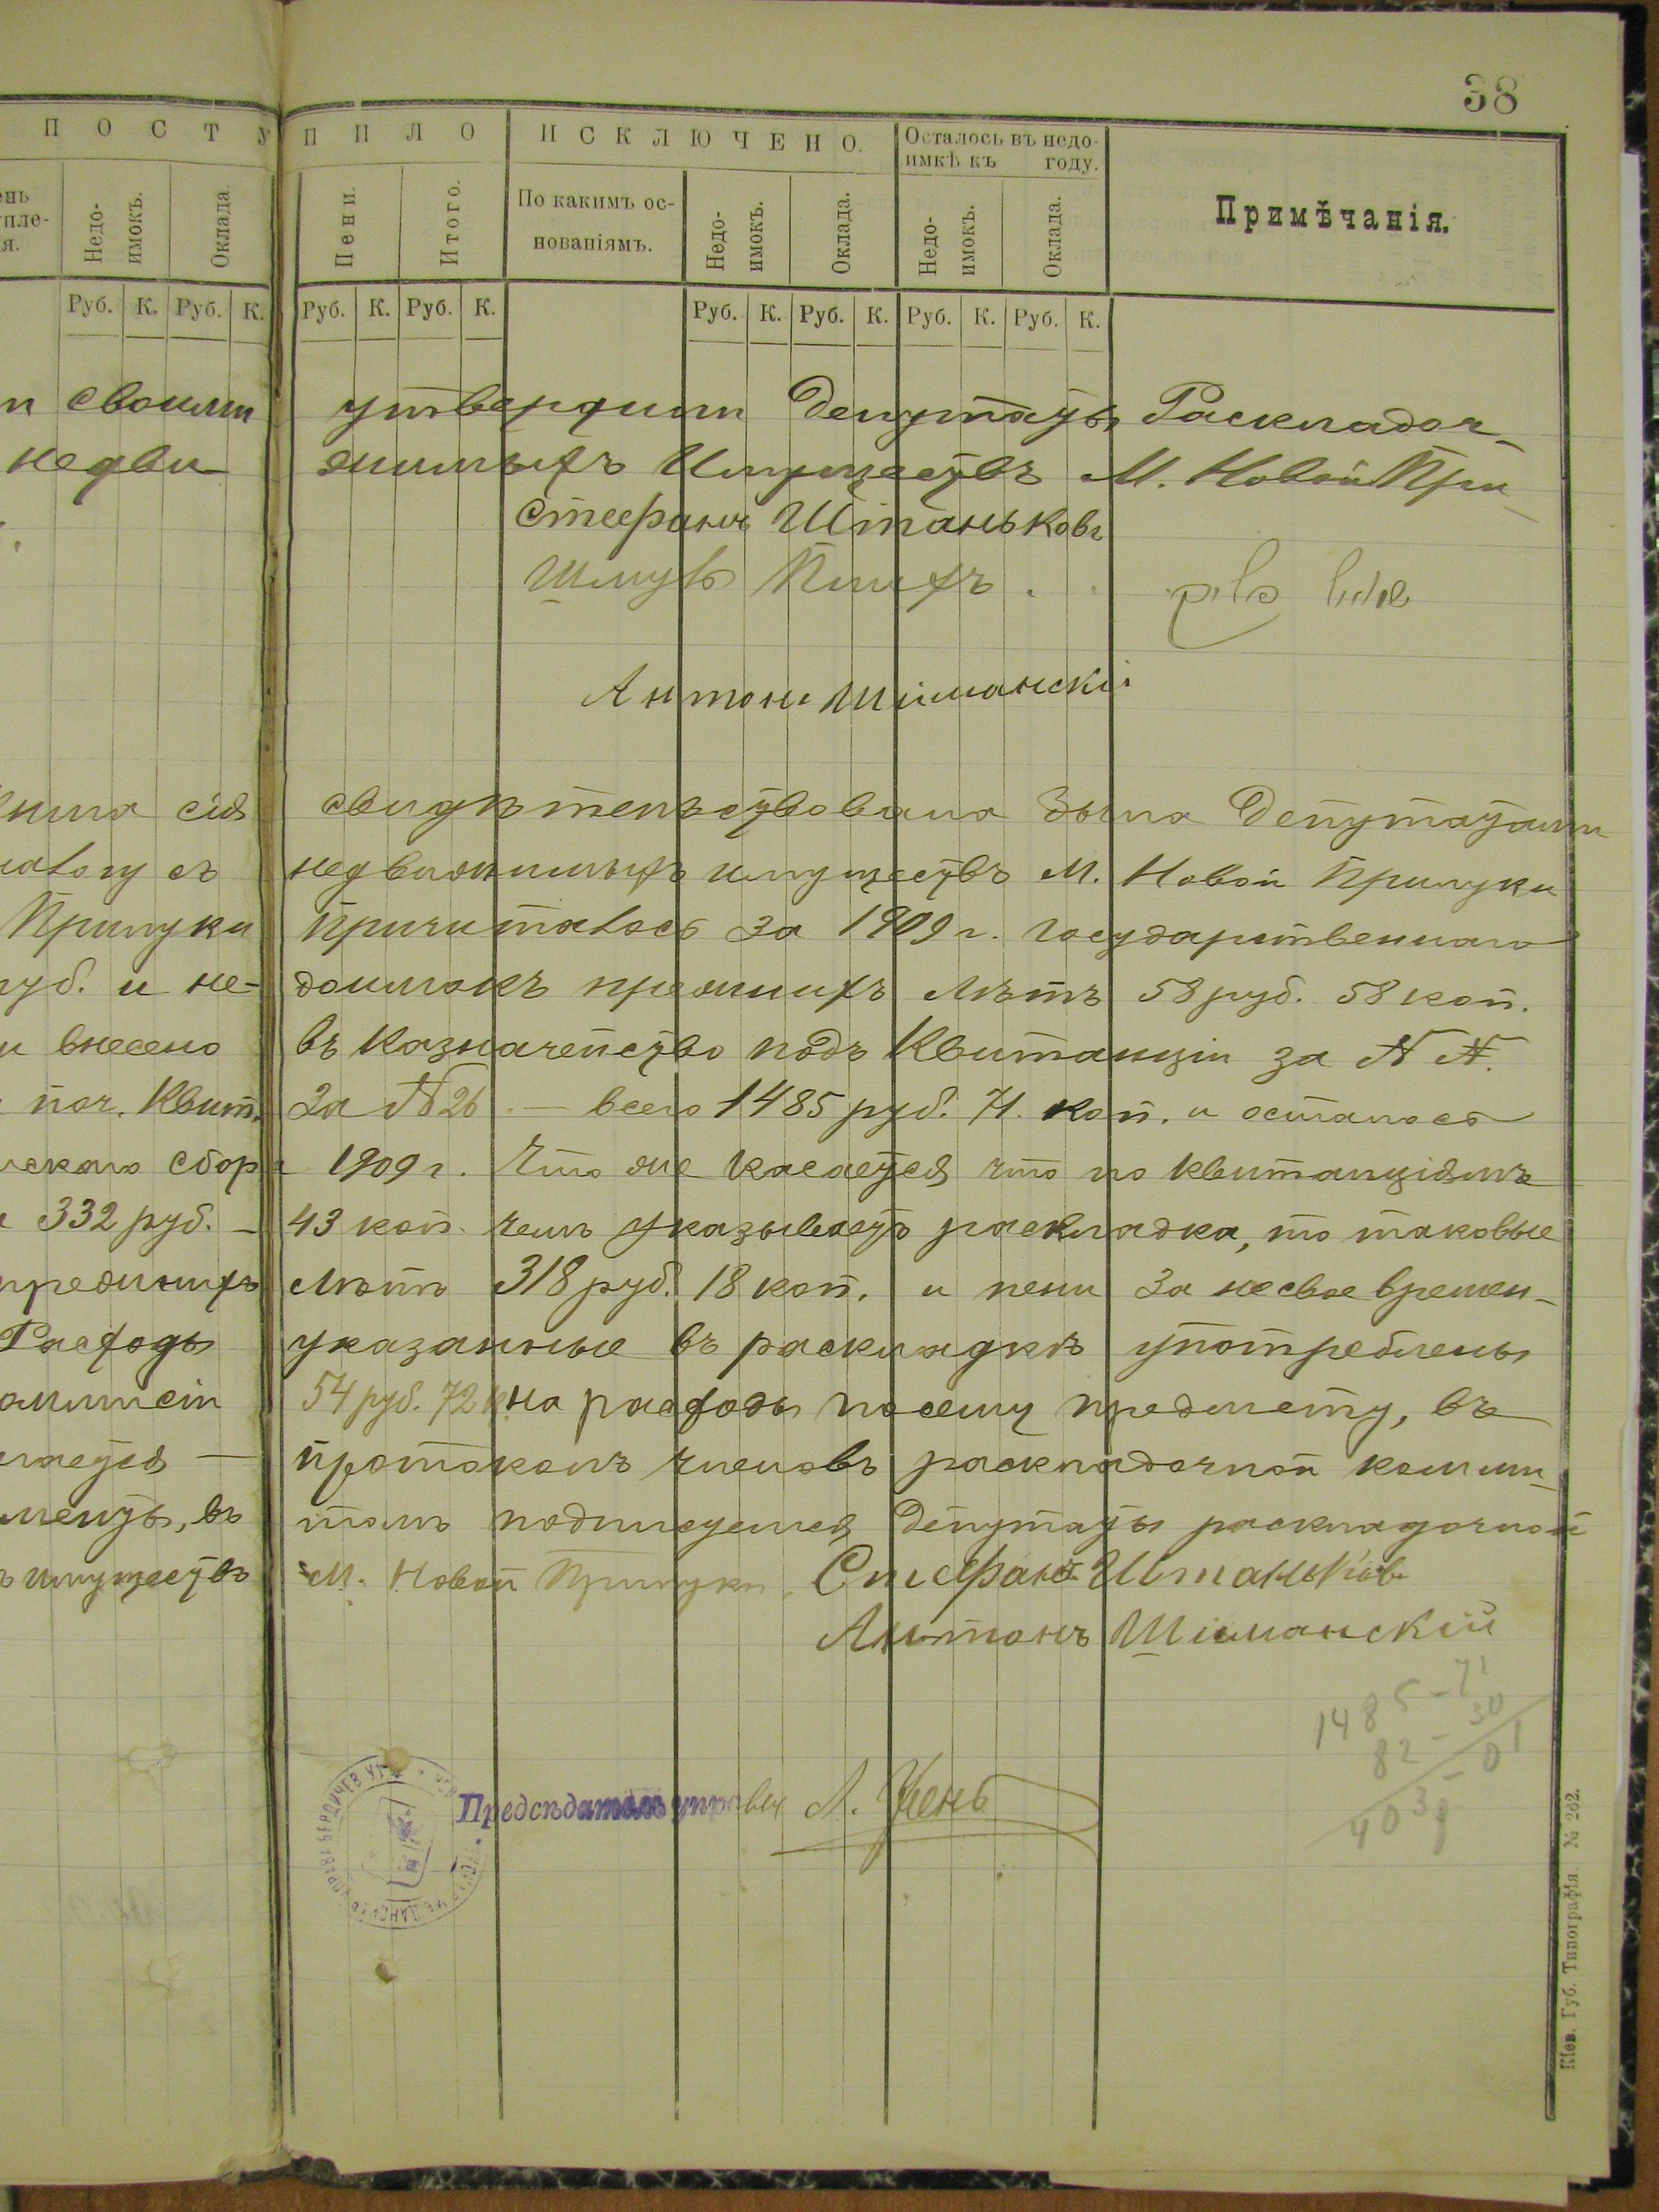 38
ПОСТУПИЛО
ИСКЛЮЧЕНО.
Осталось въ недо-
имкѣ къ году.
Примѣчанія.
Недо-
имокъ.
Оклада
Пени.
Итого.
По какимъ ос-
нованіямъ.
Недо-
имокъ.
Оклада.
Недо-
имокъ.
Оклада.
Руб. К. Руб. К. Руб. К. Руб. К. Руб. К. Руб. К. Руб. К. Руб. К.
своими утвердили Депутаты Раскладоч-
недви жимыхъ Имуществъ М. Новой При-
Стефанъ Штаньковъ
Шмуль
Антонъ Шиманскій
сія свидѣтельствована была Депутатами
съ недвижимыхъ имуществъ М. Новой Прилуки
Прилуки причиталось за 1909 г. Государственнаго
руб. и не- доимокъ прежнихъ лѣтъ 58 руб. 58 коп.
внесено въ Казначейство подъ Квитанціи за № №.
поч. Квит. За № 26 — всего 1485 руб. 71. коп. и осталось
сбора 1909 г. Что же касается что по квитанціямъ
332 руб. — 43 коп. чемъ указываетъ раскладка, то таковые
прежнихъ лѣтъ 318 руб. 18 коп. и пени За несвоевремен-
Расходы указанные въ раскладкѣ употреблены
54 руб. 72 к. на расходы по сему предмету, въ
протоколъ членовъ раскладочной комми-
въ томъ подписуемся Депутаты раскладочной
имуществъ М. Новой Прилуки Стефанъ Штаньков
Антонъ Шиманскій
1485 - 71
82 - 30
1403 - 01
Предсѣдатель управы
Кіев. Губ. Типографія № 262.